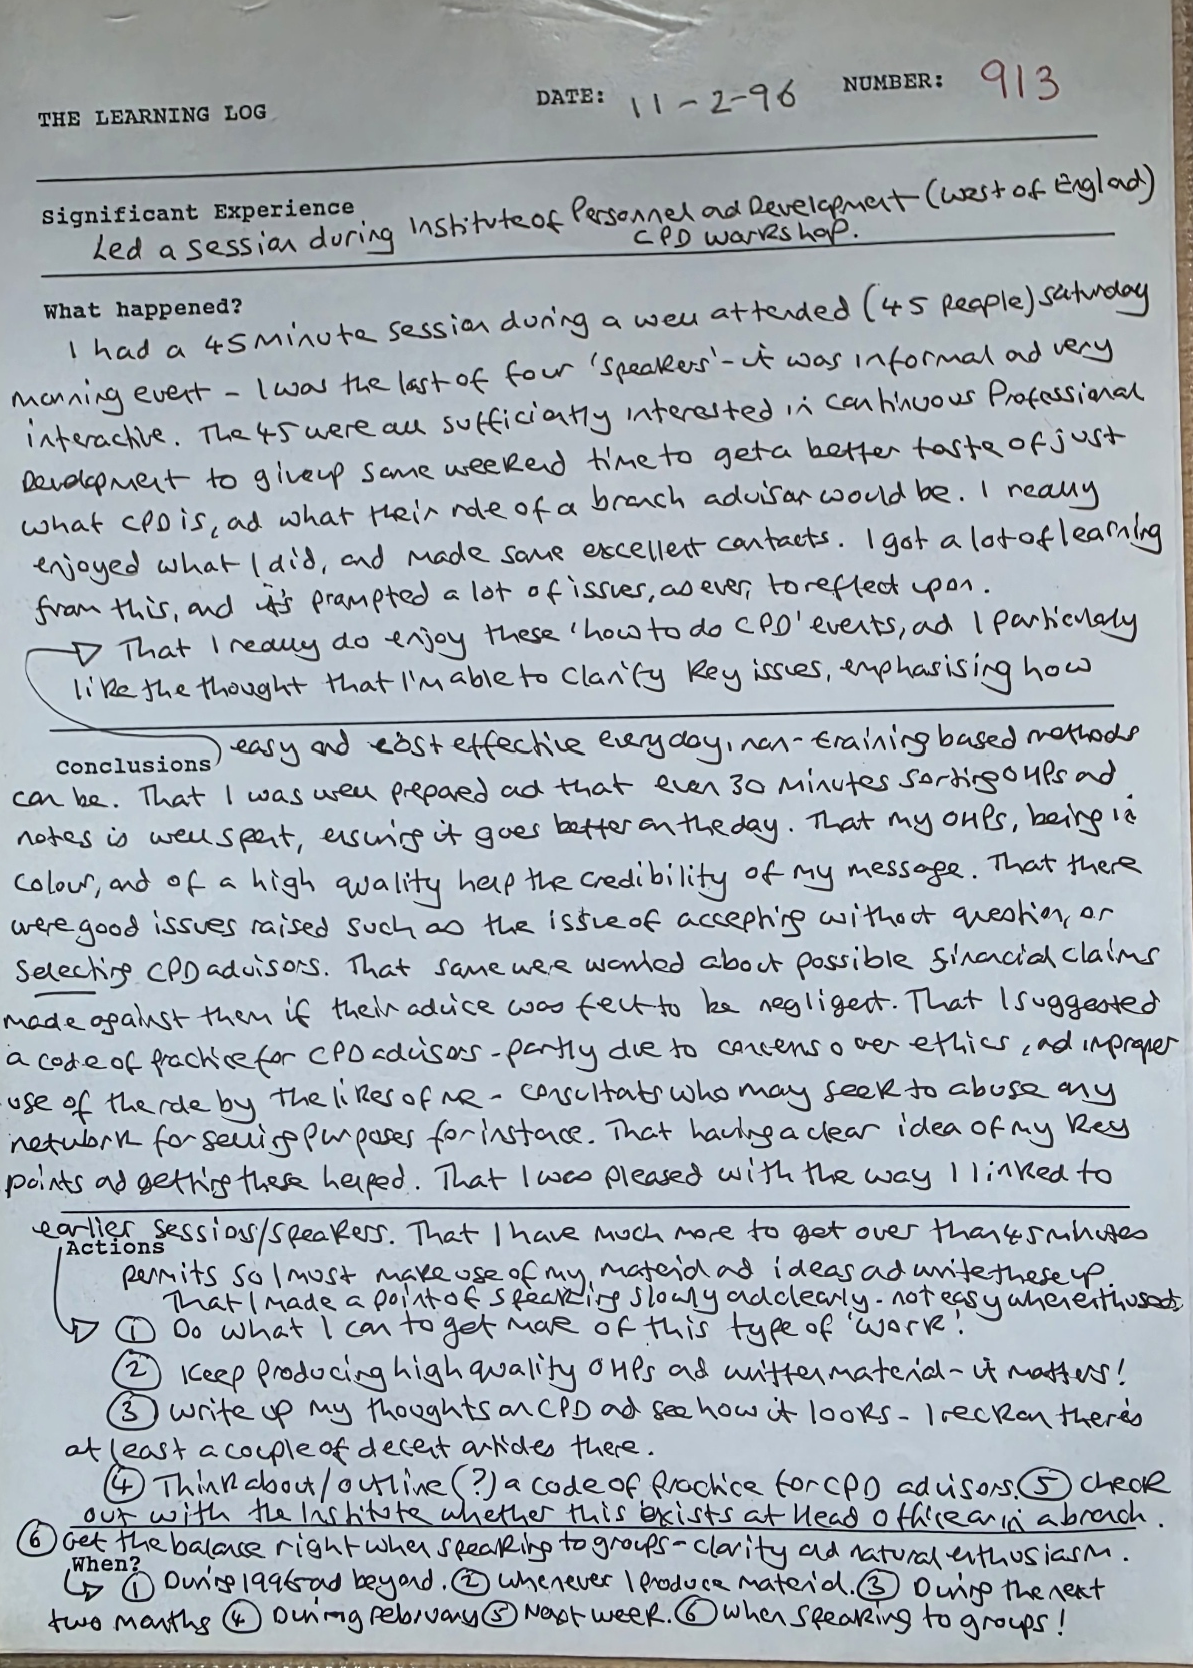 THE LEARNING LOG DATE: 11-2-96 NUMBER: 913
Significant Experience
Led a session during Institute of Personnel ad Development (West of Englad)
CPD workshop.
What happened?
I had a 45 minute session during a well attended (45 people) Saturday
morning event - I was the last of four 'speakers' - it was informal ad very
interactive. The 45 were all sufficiently interested in Continuous Professional
Development to give up some weekend time to get a better taste of just
what CPD is, ad what their role of a branch advisor would be. I really
enjoyed what I did, and made some excellent contacts. I got a lot of learning
from this, and it's prompted a lot of issues, as ever, to reflect upon.
That I really do enjoy these 'how to do CPD' events, ad I particularly
like the thought that I'm able to clarify key issues, emphasising how
easy and cost effective everyday, non-training based methods
Conclusions
can be. That I was well prepared ad that even 30 minutes sorting OHPs ad
notes is well spent, ensuring it goes better on the day. That my OHPs, being in
colour, and of a high quality help the credibility of my message. That there
were good issues raised such as the issue of accepting without question, or
selecting CPD advisors. That some were worried about possible financial claims
made against them if their advice was felt to be negligent. That I suggested
a code of practice for CPD advisors - partly due to concerns over ethics, ad improper
use of the role by the likes of me - consultats who may seek to abuse any
network for selling purposes for instace. That having a clear idea of my key
points ad getting these helped. That I was pleased with the way I linked to
earlier sessions/speakers. That I have much more to get over than 45 minutes
Actions
permits so I must make use of my material ad ideas ad write these up.
That I made a point of speaking slowly ad clearly - not easy when enthused.
① Do what I can to get more of this type of 'work'!
② Keep producing high quality OHPs ad written material - it matters!
③ Write up my thoughts on CPD ad see how it looks - I reckon there's
at least a couple of decent articles there.
④ Think about/outline (?) a code of practice for CPD advisors. ⑤ Check
out with the Institute whether this exists at Head Office or in a branch.
⑥ Get the balance right when speaking to groups - clarity ad natural enthusiasm.
When?
① During 1996 ad beyond. ② Whenever I produce material. ③ During the next
two months ④ During February ⑤ Next week. ⑥ When speaking to groups!